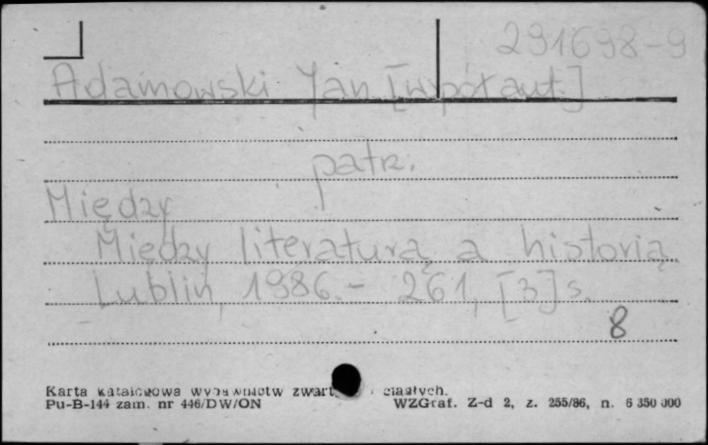 291698-9
Adamowski Jan [współaut.]
patrz.
Między
Między literaturą a historią
Lublin, 1986.- 261, [3] s.
8
Karta katalogowa wydawnictw zwartych ciągłych.
Pu-B-144 zam. nr 446/DW/ON WZGraf. Z-d 2, z. 255/86, n. 6 350 000